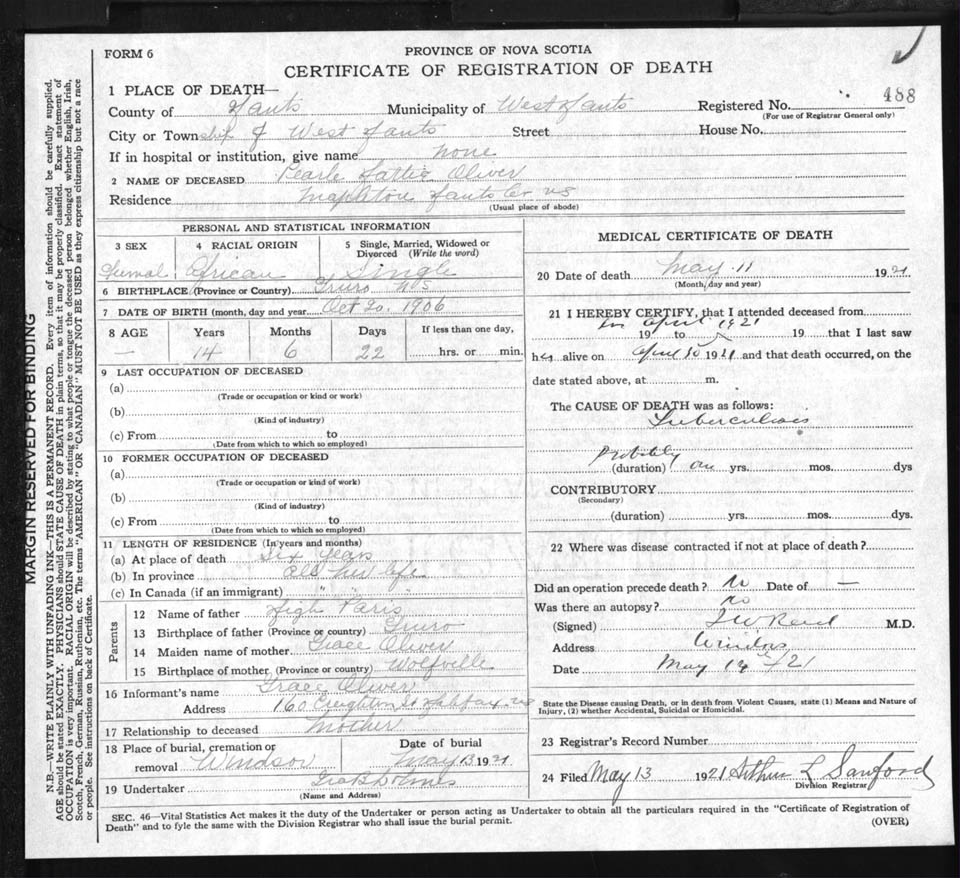 FORM 6
PROVINCE OF NOVA SCOTIA
CERTIFICATE OF REGISTRATION OF DEATH
1 PLACE OF DEATH—
County of Hants Municipality of West Hants Registered No. 488
(For use of Registrar General only)
City or Township of West Hants Street House No.
If in hospital or institution, give name none
2 NAME OF DECEASED Pearle Hattie Oliver
Residence Mapleton Hants Co NS
(Usual place of abode)
PERSONAL AND STATISTICAL INFORMATION
3 SEX 4 RACIAL ORIGIN 5 Single, Married, Widowed or Divorced (Write the word)
Femal African Single
6 BIRTHPLACE (Province or Country) Truro NS
7 DATE OF BIRTH (month, day and year) Oct 20. 1906
8 AGE Years Months Days If less than one day,
— 14 6 22 hrs. or min.
9 LAST OCCUPATION OF DECEASED
(a)
(Trade or occupation or kind or work)
(b)
(Kind of industry)
(c) From to
(Date from which to which so employed)
10 FORMER OCCUPATION OF DECEASED
(a)
(Trade or occupation or kind of work)
(b)
(Kind of industry)
(c) From to
(Date from which to which so employed)
11 LENGTH OF RESIDENCE (In years and months)
(a) At place of death Six years
(b) In province all her life
(c) In Canada (if an immigrant) " " "
Parents
12 Name of father Paris
13 Birthplace of father (Province or country) Truro
14 Maiden name of mother Grace Oliver
15 Birthplace of mother (Province or country) Wolfville
16 Informant's name Grace Oliver
Address 160 Creighton St Halifax NS
17 Relationship to deceased Mother
18 Place of burial, cremation or removal Windsor
Date of burial May 13 1921
19 Undertaker
(Name and Address)
MEDICAL CERTIFICATE OF DEATH
20 Date of death May 11 1921
(Month, day and year)
21 I HEREBY CERTIFY, that I attended deceased from
in April 1921
19 to 19 that I last saw
her alive on April 10 1921 and that death occurred, on the
date stated above, at m.
The CAUSE OF DEATH was as follows:
Tuberculosis
Probably
(duration) one yrs. mos. dys
CONTRIBUTORY
(Secondary)
(duration) yrs. mos. dys.
22 Where was disease contracted if not at place of death?
Did an operation precede death? No Date of —
Was there an autopsy? No
(Signed) J W Reid M.D.
Address Windsor
Date May 12 / 21
State the Disease causing Death, or in death from Violent Causes, state (1) Means and Nature of
Injury, (2) whether Accidental, Suicidal or Homicidal.
23 Registrar's Record Number
24 Filed May 13 1921 Arthur L Sanford
Division Registrar
SEC. 46—Vital Statistics Act makes it the duty of the Undertaker or person acting as Undertaker to obtain all the particulars required in the "Certificate of Registration of
Death" and to fyle the same with the Division Registrar who shall issue the burial permit. (OVER)
MARGIN RESERVED FOR BINDING
N.B.—WRITE PLAINLY WITH UNFADING INK—THIS IS A PERMANENT RECORD. Every item of information should be carefully supplied.
AGE should be stated EXACTLY. PHYSICIANS should STATE CAUSE OF DEATH in plain terms, so that it may be properly classified. Exact statement of
OCCUPATION is very important. RACIAL ORIGIN will be described by stating to what people or tongue the deceased person belonged whether English, Irish,
Scotch, French, German, Russian, Ruthenian, etc. The terms "AMERICAN" OR "CANADIAN" MUST NOT BE USED as they express citizenship but not a race
or people. See instructions on back of Certificate.